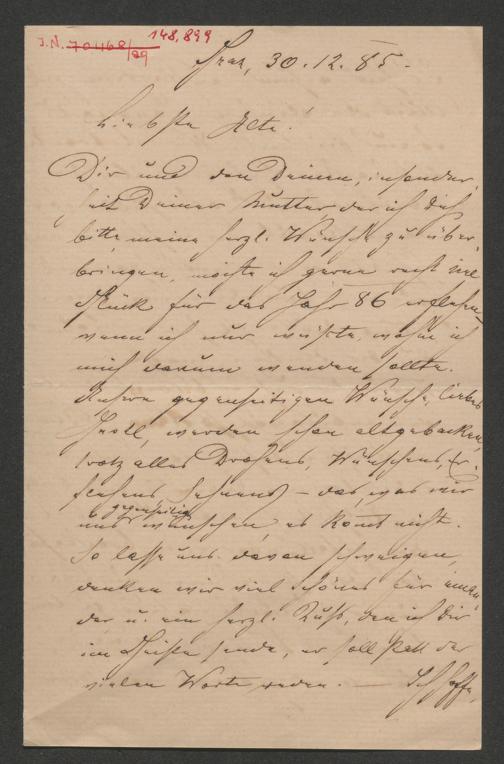 J.N. 70468/89 148,899
Graz, 30.12.85.
Liebste Alte!
Dir und den Deinen, insonder
heit Deiner Mutter der ich Dich
bitte meine herzl. Wünsche zu über-
bringen, möchte ich gerne recht viel
Glück für das Jahr 86 erflehen
wenn ich nur wüßte, wohin ich
mich darum wenden sollte.
Unsere gegenseitigen Wünsche, liebes
werden schon altgebacken,
trotz alles Drohens, Wünschens, Er-
flehens Sehnens – das, was wir
uns gegenseitig wünschen, es komt nicht.
So lasse uns davon schweigen,
denken wir viel schönes für einan
der u. ein herzl. Kuß, den ich Dir
im Geiste sende, er soll statt der
vielen Worte reden. — Ich hoffe,